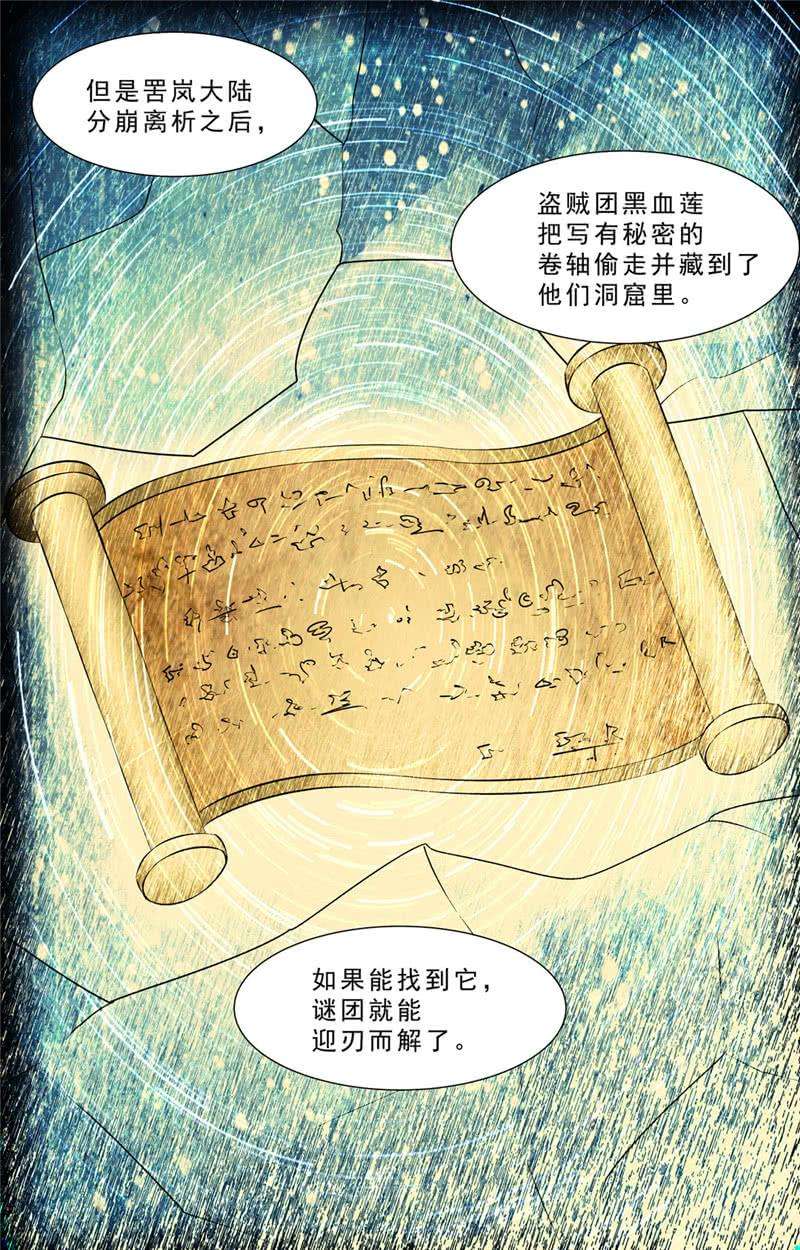 但是罟岚大陆
分崩离析之后，
盗贼团黑血莲
把写有秘密的
卷轴偷走并藏到了
他们洞窟里。
如果能找到它，
谜团就能
迎刃而解了。